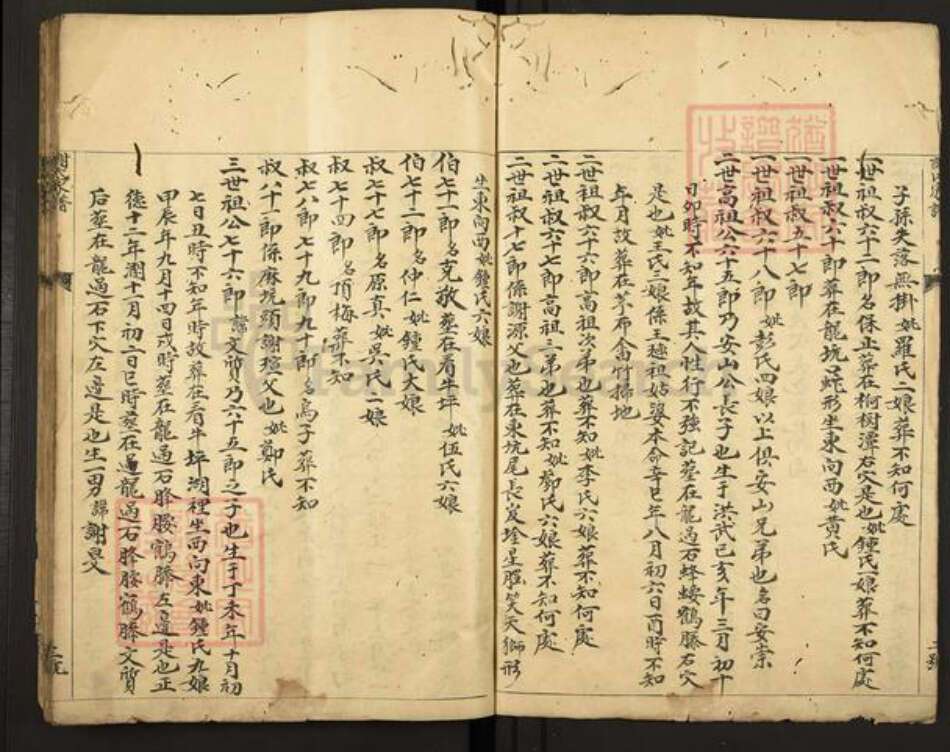 子孫失落無掛妣羅氏二娘葬不知何處
二世祖叔六十二郎名保正葬在桐樹潭右穴是也妣鍾氏一娘葬不知何處
二世祖叔六十郎葬在龍坑蛇形坐東向西妣黃氏
二世祖叔五十七郎
二世祖叔六十八郎妣彭氏四娘以上俱安山兄弟也名曰安崇
二世高祖公六十五郎乃安山公長子也生于洪武己亥年三月初十
日卯時不知年故其人性行不強記葬在龍過石蜂腰鶴膝右穴
是也妣王氏三娘係王廷祖姑婆本命辛巳年八月初六日酉時不知
年月故葬在茅布畬竹掃地
二世祖叔六十六郎高祖次弟也葬不知妣李氏六娘葬不知何處
二世祖叔六十七郎高祖三弟也葬不知妣鄧氏六娘葬不知何處
二世祖叔十七郎係謝源父也葬在東坑尾長岌墖星腦笑天獅形
坐東向西妣鍾氏六娘
伯七十一郎名克敬葬在看牛坪妣伍氏六娘
伯七十二郎名仲仁妣鍾氏大娘
叔七十七郎名原真妣吳氏二娘
叔七十四郎名頂梅葬不知
叔七八郎七十九郎九十郎名烏子葬不知
叔八十一郎係麻坑頭謝瑄父也妣鄭氏
三世祖公七十六郎諱文質乃六十五郎之子也生于丁未年十月初
七日丑時不知年時故葬在看牛坪湖裡坐西向東妣鍾氏九娘
甲辰年九月十四日戌時葬在龍過石蜂腰鶴膝左邊是也正
德十二年潤十二月初二日巳時葬在過龍過石蜂腰鶴膝文質
后葬在龍過石下穴左邊是也生一男諱謝旻
FamilySearch